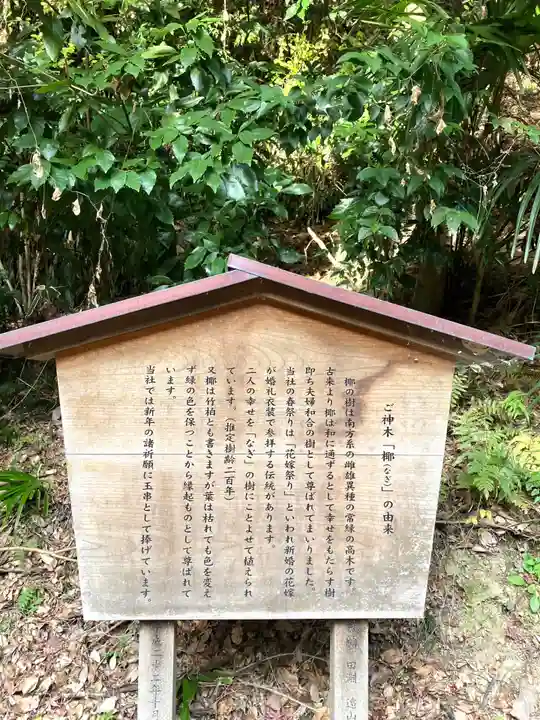 ご神木「椰(なぎ)」の由来
椰の樹は南方系の雌雄異種の常緑の高木です。
古来より椰は和に通ずるとして幸せをもたらす樹
即ち夫婦和合の樹として尊ばれてまいりました。
当社の春祭りは「花嫁祭り」といわれ新婚の花嫁
が婚礼衣装で参拝する伝統があります。
二人の幸せを「なぎ」の樹にことよせて植えられ
ています。(推定樹齢二百年)
又椰は竹柏とも書きますが葉は枯れても色を変え
ず緑の色を保つことから縁起ものとして尊ばれて
います。
当社では新年の諸祈願に玉串として捧げています。